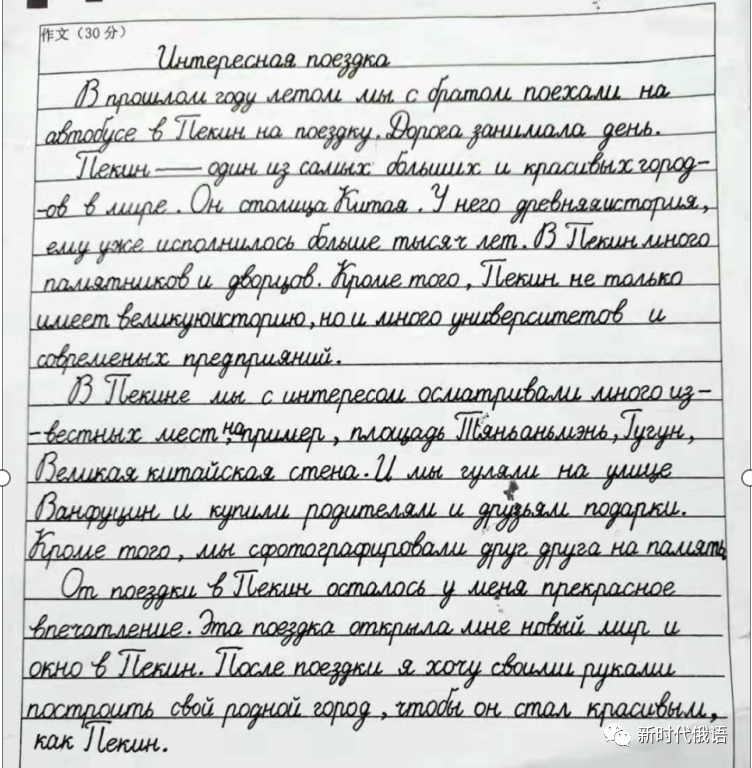 作文（30分）
Интересная поездка
В прошлом году летом мы с братом поехали на
автобусе в Пекин на поездку. Дорога занимала день.
Пекин — один из самых больших и красивых город-
-ов в мире. Он столица Китая. У него древняя история,
ему уже исполнилось больше тысяч лет. В Пекин много
памятников и дворцов. Кроме того, Пекин не только
имеет великую историю, но и много университетов и
современых предприяний.
В Пекине мы с интересом осматривали много из-
-вестных мест, например, площадь Тяньаньмэнь, Гугун,
Великая китайская стена. И мы гуляли на улице
Ванфуцин и купили родителям и друзьям подарки.
Кроме того, мы сфотографировали друг друга на память.
От поездки в Пекин осталось у меня прекрасное
впечатление. Эта поездка открыла мне новый мир и
окно в Пекин. После поездки я хочу своими руками
построить свой родной город, чтобы он стал красивым,
как Пекин.
新时代俄语